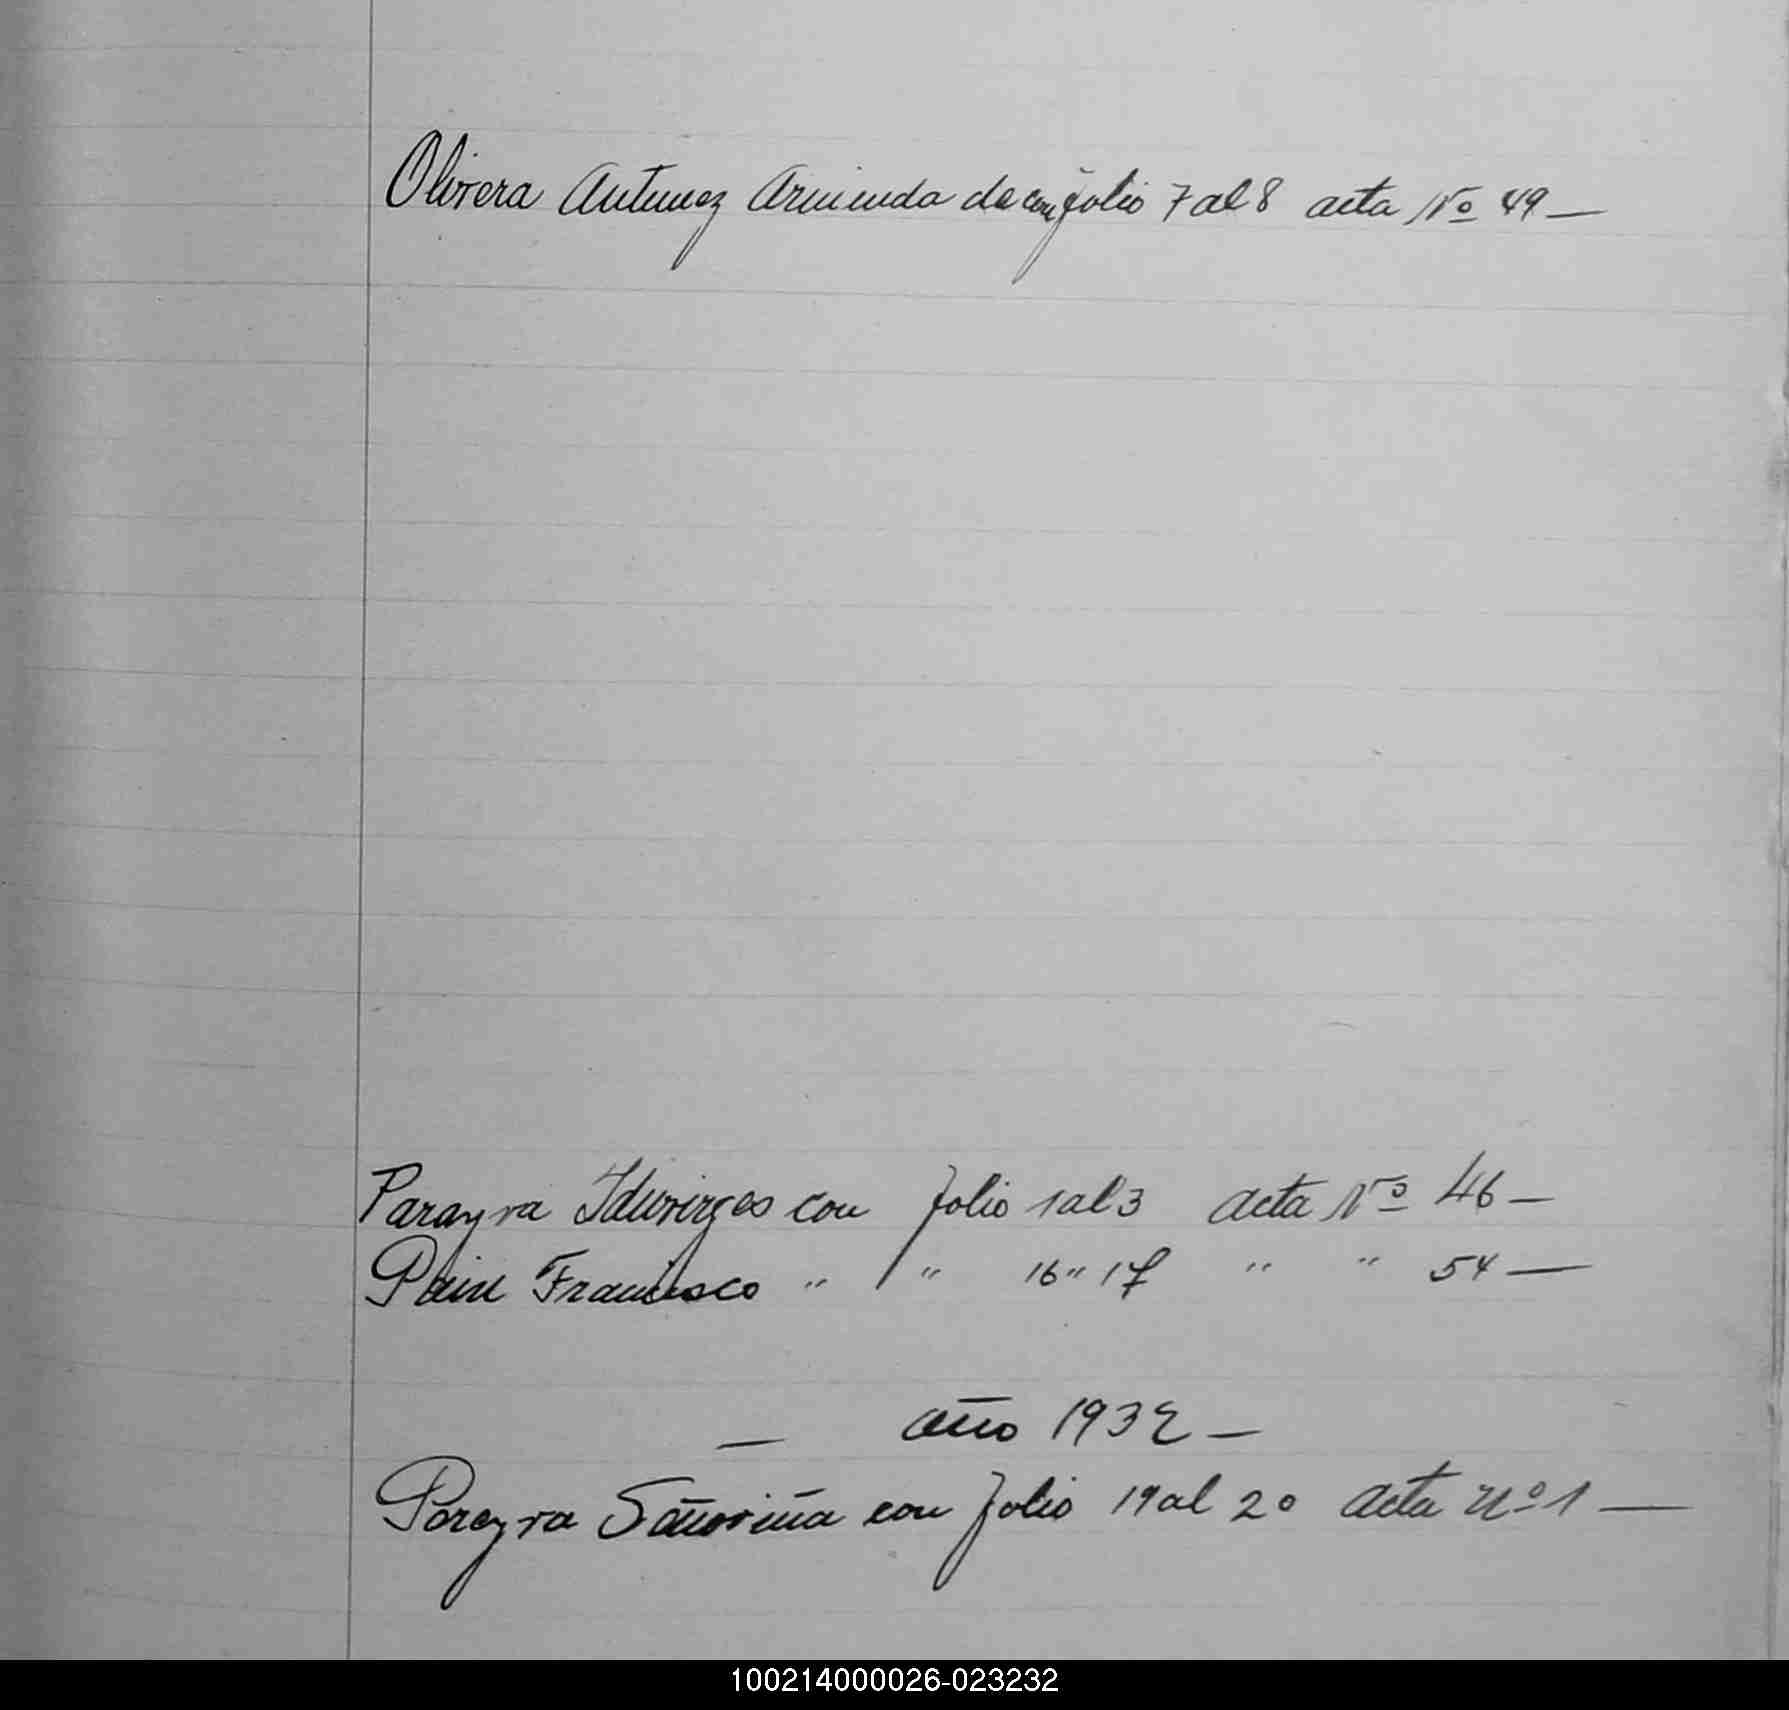 Olivera Antunez Arminda de con folio 7 al 8 acta Nº 49 —
Parayra Iduvirges con folio 1 al 3 acta Nº 46 —
Pain Francisco " " 16 " 17 " " 54 —
— año 1932 —
Pereyra Señoriña con folio 19 al 20 acta nº 1 —
100214000026-023232